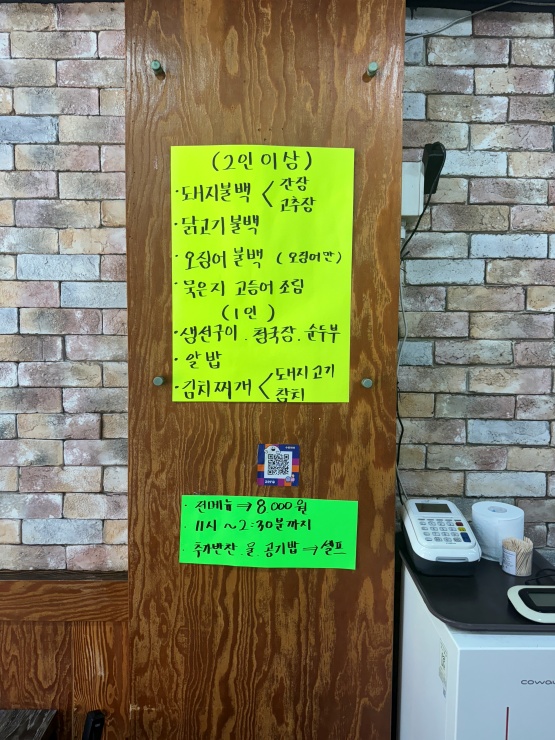 (2인 이상)
· 돼지불백 < 간장
고추장
· 닭고기 불백
· 오징어 불백 (오징어만)
· 묵은지 고등어 조림
(1인)
· 생선구이 . 청국장 . 순두부
· 알밥
· 김치찌개 < 돼지고기
참치
· 전메뉴 ⇒ 8000원
· 11시 ~ 2:30분까지
· 추가반찬 . 물 . 공기밥 ⇒ 셀프
COWAY